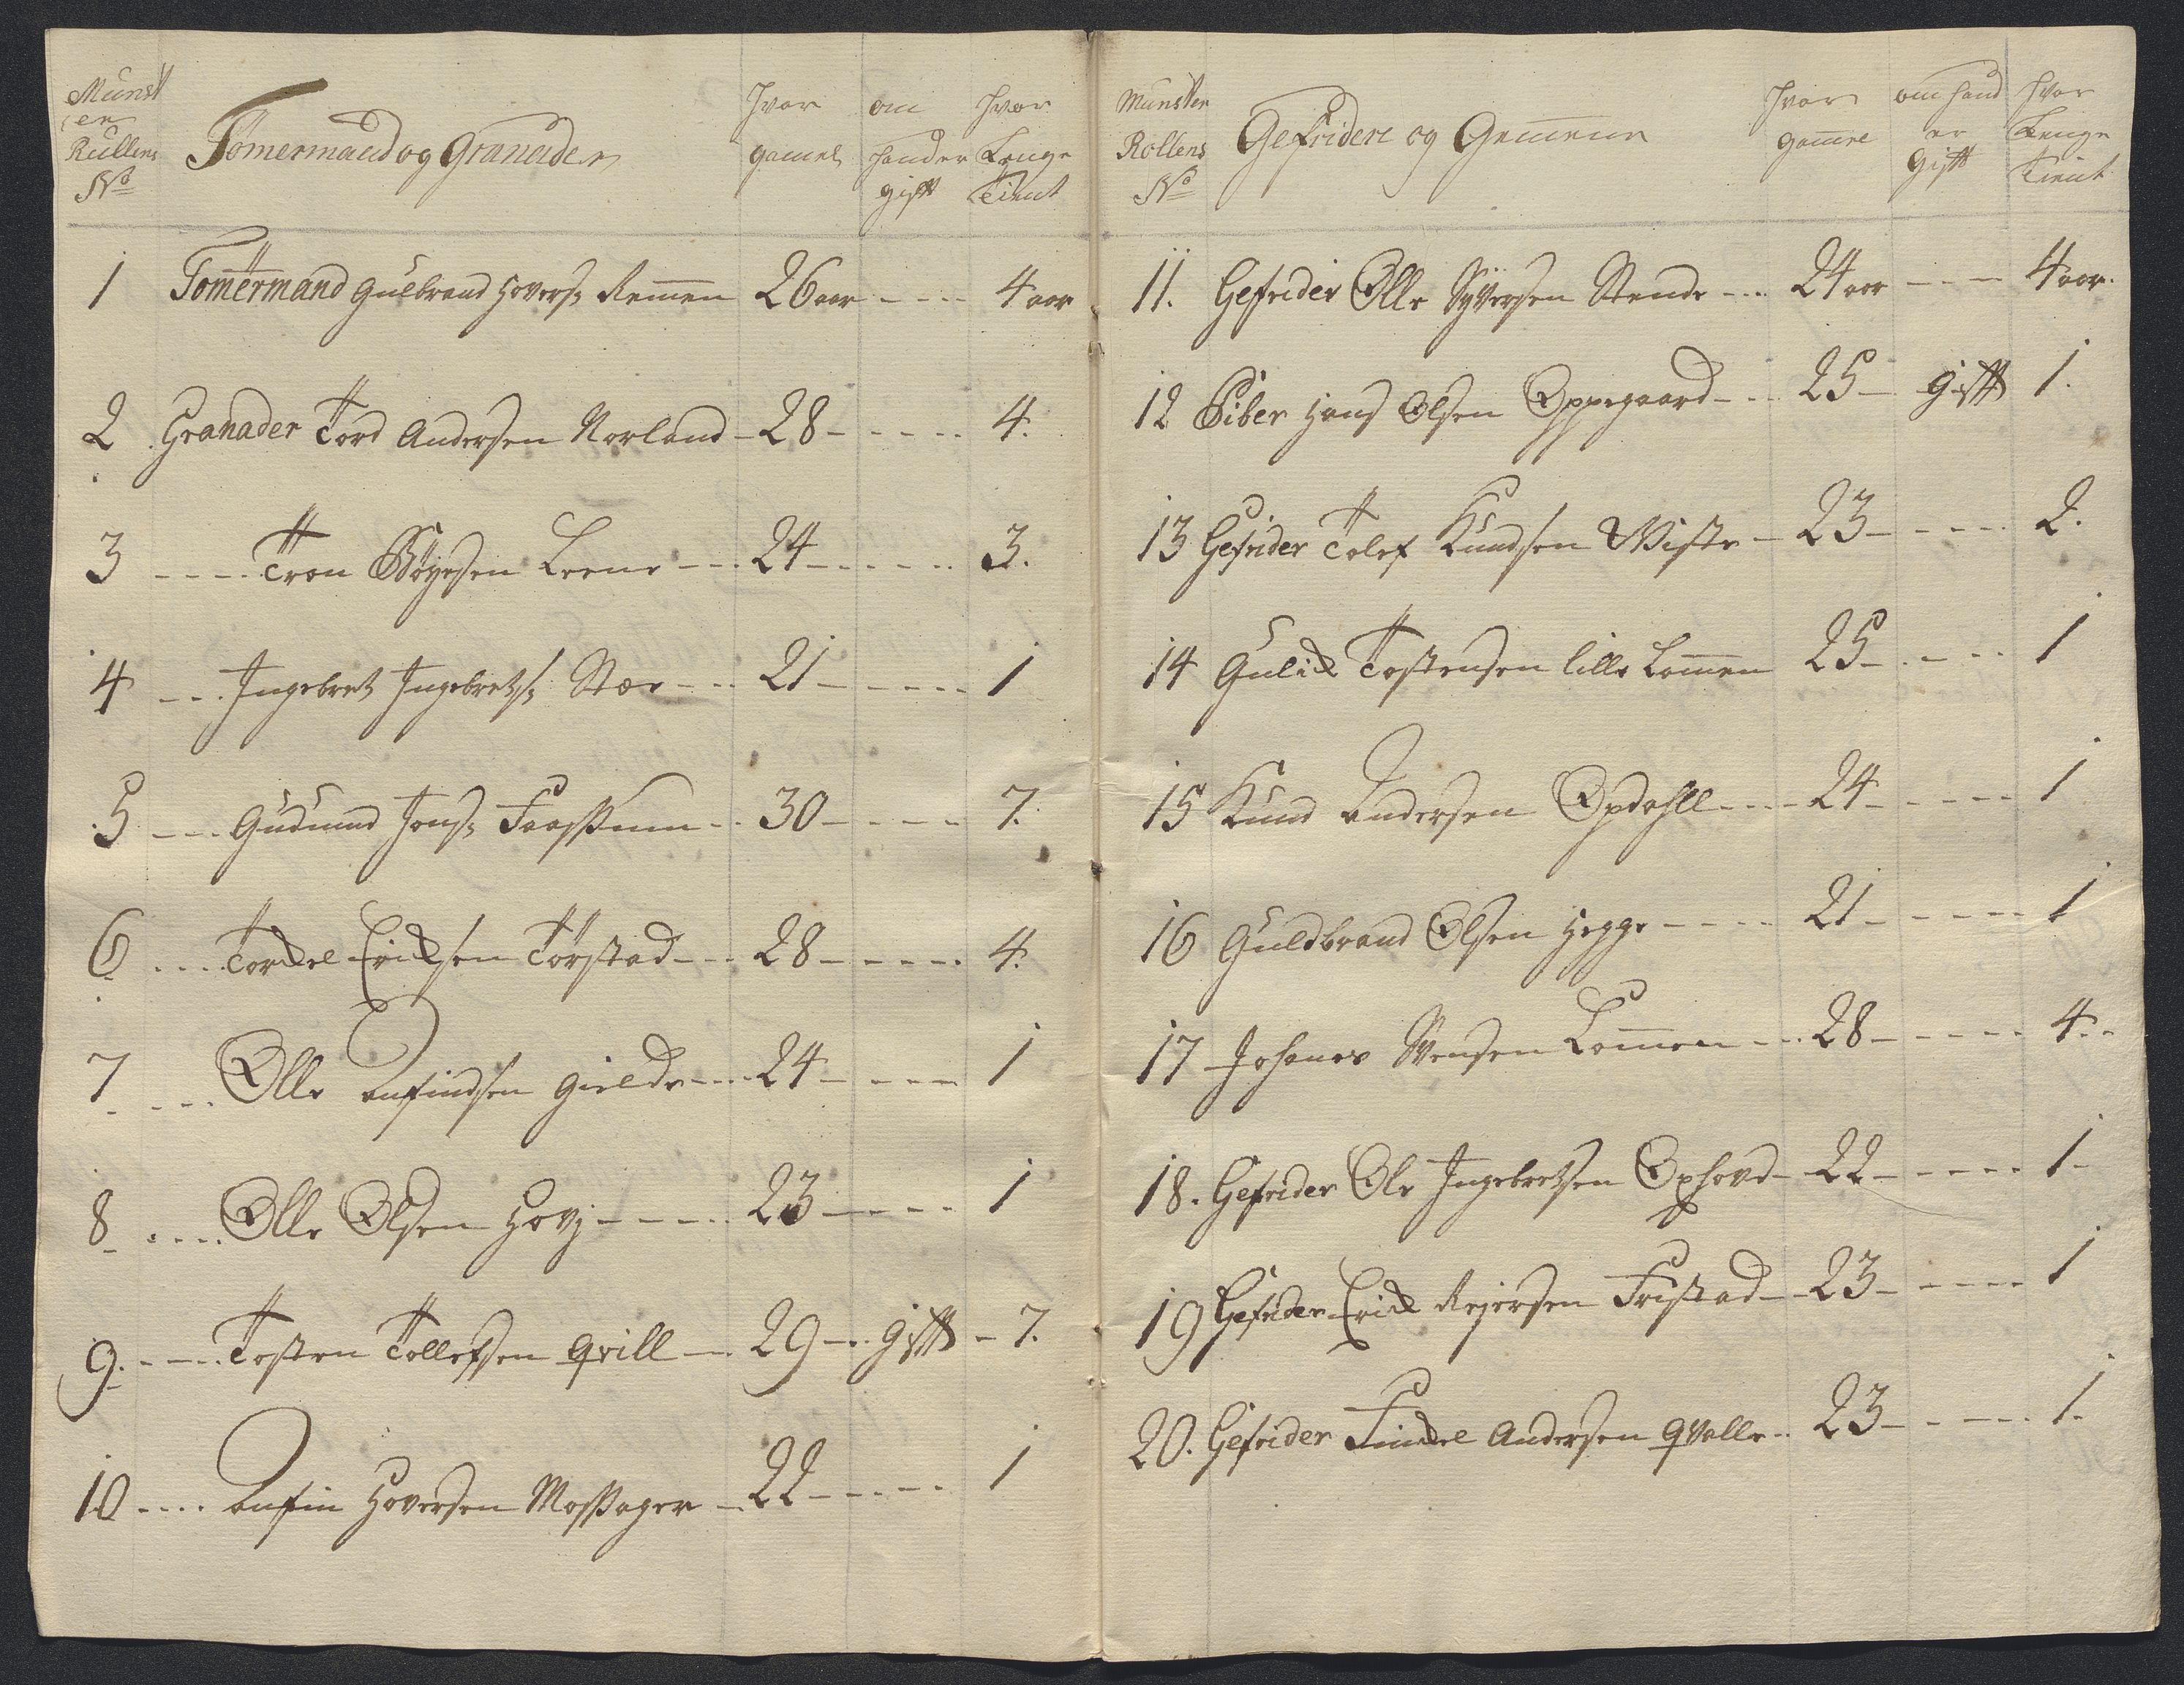 Munst
er
Rullens
No
Tömermand og Granader
hvor
gamel
om
hand er
gift
hvor
Lenge
Tient
1 Tömmermand Gulbrand Hovers: Remmen 26 aar - - - 4 aar
2 Granader Tord Andersen Norland - 28 - - - - 4.
3 - - - - Tron Bøyesen Leene - - - 24 - - - - - 3.
4 - - - Ingebret Ingebrets: Stør - - - 21 - - - - 1
5 - - - Gudmund Jons: Faassum - - 30 - - - - 7.
6 - - - - Torkel Eriksen Törstad - - - 28 - - - - - 4.
7 - - - Olle Anfindsen Gielde - - - 24 - - - - 1
8 - - - - Olle Olsen Hovj - - - - - 23 - - - - 1
9. - - - - Tosten Tollefsen Qvill - - 29 - - gift - 7.
10 - - - - Anfin Hoversen Mossager - 22 - - - - - 1
Munster
Rollens
No
Gefridere og Gemene
hvor
gamle
om hand
er
Gift
hvor
Lenge
Tient
11. Gefrider Olle Syversen Stende - - - 24 aar - - - 4 aar.
12 Piber Hans Olsen Oppegaard - - - 25 - gift 1.
13 Gefrider Tolef Knudsen Wiste - 23 - - - - 2.
14 Gulik Tostensen lille Lommen 25 - - - - 1
15 Knud Andersen Opdahll - - - - 24 - - - - - 1
16 Guldbrand Olsen Hegge - - - - 21 - - - - - 1
17 Johanes Svensen Lommen - - - 28 - - - - - 4 - -
18. Gefrider Ole Ingebretsen Ophovd - - 22 - - - - - 1 -
19 Gefrider Erik Rejersen Fristad - - 23 - - - - - 1
20. Gefrider Finkel Andersen Qvalle - - 23 - - - - - 1.